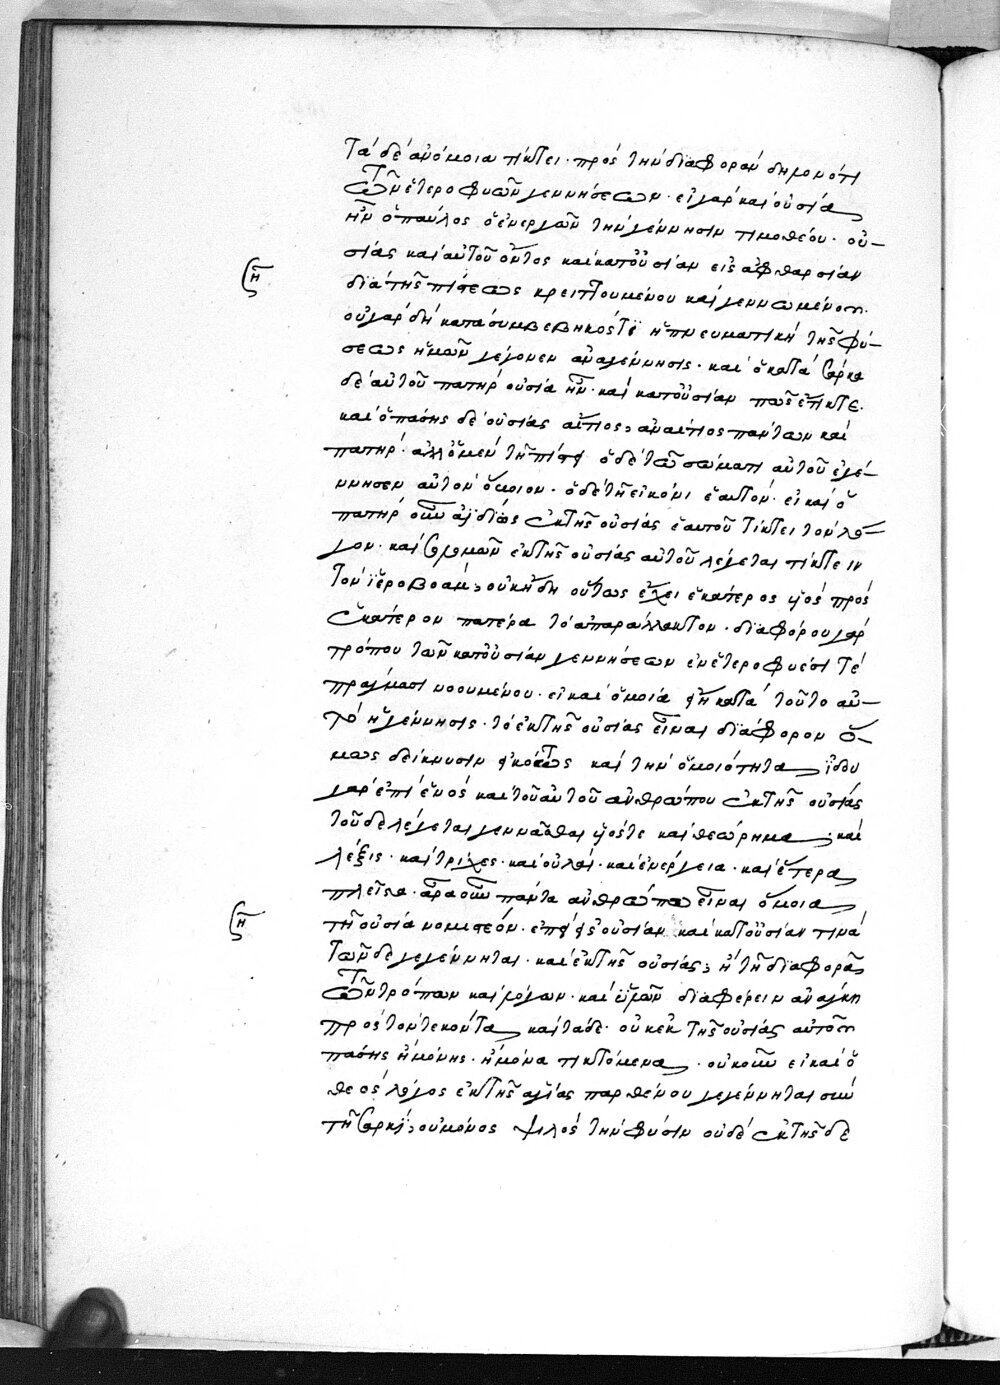 τὰ δὲ ἀνόμοια τίκτει· πρὸς τὴν διαφορὰν δηλονότι
τῶν ἑτεροφυῶν γεννήσεων· εἰ γὰρ καὶ οὐσία
ἦν ὁ παῦλος ὁ ἐνεργῶν τὴν γέννησιν τιμοθέου· οὐ-
σίας καὶ αὐτοῦ ὄντος καὶ κατ' οὐσίαν εἰς ἀφθαρσίαν
διὰ τῆς πίστεως κρειττουμένου καὶ γεννωμένου·
οὐ γὰρ δὴ κατὰ συμβεβηκός τι ἡ πνευματικὴ τῆς φύ-
σεως ἡμῶν γέγονεν ἀναγέννησις· καὶ ὁ κατὰ σάρκα
δὲ αὐτοῦ πατὴρ οὐσία ἦν· καὶ κατ' οὐσίαν πως ἔτικτε·
καὶ ὁ πάσης δὲ οὐσίας αἴτιος ἀναίτιος πάντων καὶ
πατήρ· ἀλλ' ὁ μὲν τῇ πίστει ὁ δὲ τῷ σώματι αὐτοῦ ἐγέ-
ννησεν αὐτὸν ὅμοιον· ὁ δὲ τῇ εἰκόνι ἑαυτόν· εἰ καὶ ὁ
πατὴρ οὖν ἀϊδίως ἐκ τῆς οὐσίας ἑαυτοῦ τίκτει τὸν λό-
γον· καὶ σολομῶν ἐκ τῆς οὐσίας αὐτοῦ λέγεται τίκτειν
τὸν ἱεροβοάμ· οὐκ ἤδη οὕτως ἔχει ἑκάτερος υἱὸς πρὸς
ἑκάτερον πατέρα τὸ ἀπαράλλακτον· διαφόρου γὰρ
τρόπου τῶν κατ' οὐσίαν γεννήσεων ἐν ἑτεροφυέσι τὲ
πράγμασι νοουμένου· εἰ καὶ ὁμοία ἐστὶ κατὰ τοῦτο αὐ-
τὸ ἡ γέννησις· τὸ ἐκ τῆς οὐσίας εἶναι διάφορον ὅ-
μως δείκνυσιν εἰκότως καὶ τὴν ὁμοιότητα ἰδοὺ
γὰρ ἐπὶ ἑνὸς καὶ τοῦ αὐτοῦ ἀνθρώπου ἐκ τῆς οὐσίας
τοῦδε λέγεται γεννᾶσθαι υἱός τε καὶ θεώρημα καὶ
λέξις· καὶ τρίχες· καὶ οὐλαί· καὶ ἐνέργεια· καὶ ἕτερα
πλεῖστα· ἆρα οὖν πάντα ἀνθρώπω εἶναι ὅμοια
τῇ οὐσία νομιστέον· ἐπεὶ ἐξ οὐσίαν καὶ κατ' οὐσίαν τινὰ
τῶνδε γεγέννηται· καὶ ἐκ τῆς οὐσίας ἢ τῇ διαφορᾶ
τῶν τρόπων καὶ λόγων· καὶ ἡμῶν διαφέρειν ἀνάγκη
πρὸς τὸν τεκόντα καὶ τάδε· οὐκ ἐκ τῆς οὐσίας αὐτοῦ
πάσης ἢ μόνης· ἢ μόνα τικτόμενα· οὐκοῦν εἰ καὶ ὁ
θεὸς λόγος ἐκ τῆς ἁγίας παρθένου γεγέννηται σὺν
τῇ σαρκί οὐ μόνος ψιλὸς τὴν φύσιν οὐδὲ ἐκ τῆς δὲ